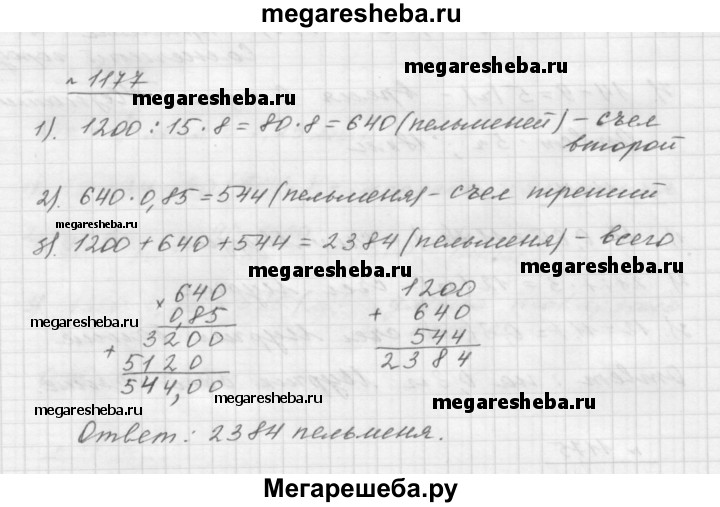 megaresheba.ru
№ 1177
megaresheba.ru
megaresheba.ru
1). 1200 : 15 · 8 = 80 · 8 = 640 (пельменей) – съел
второй
2). 640 · 0,85 = 544 (пельменя) – съел третий
megaresheba.ru
3). 1200 + 640 + 544 = 2384 (пельменя) – всего
megaresheba.ru
megaresheba.ru
× 640
0,85
3200
+ 5120
544,00
1200
+ 640
544
2384
megaresheba.ru
megaresheba.ru
megaresheba.ru
megaresheba.ru
Ответ: 2384 пельменя.
Мегарешеба.ру